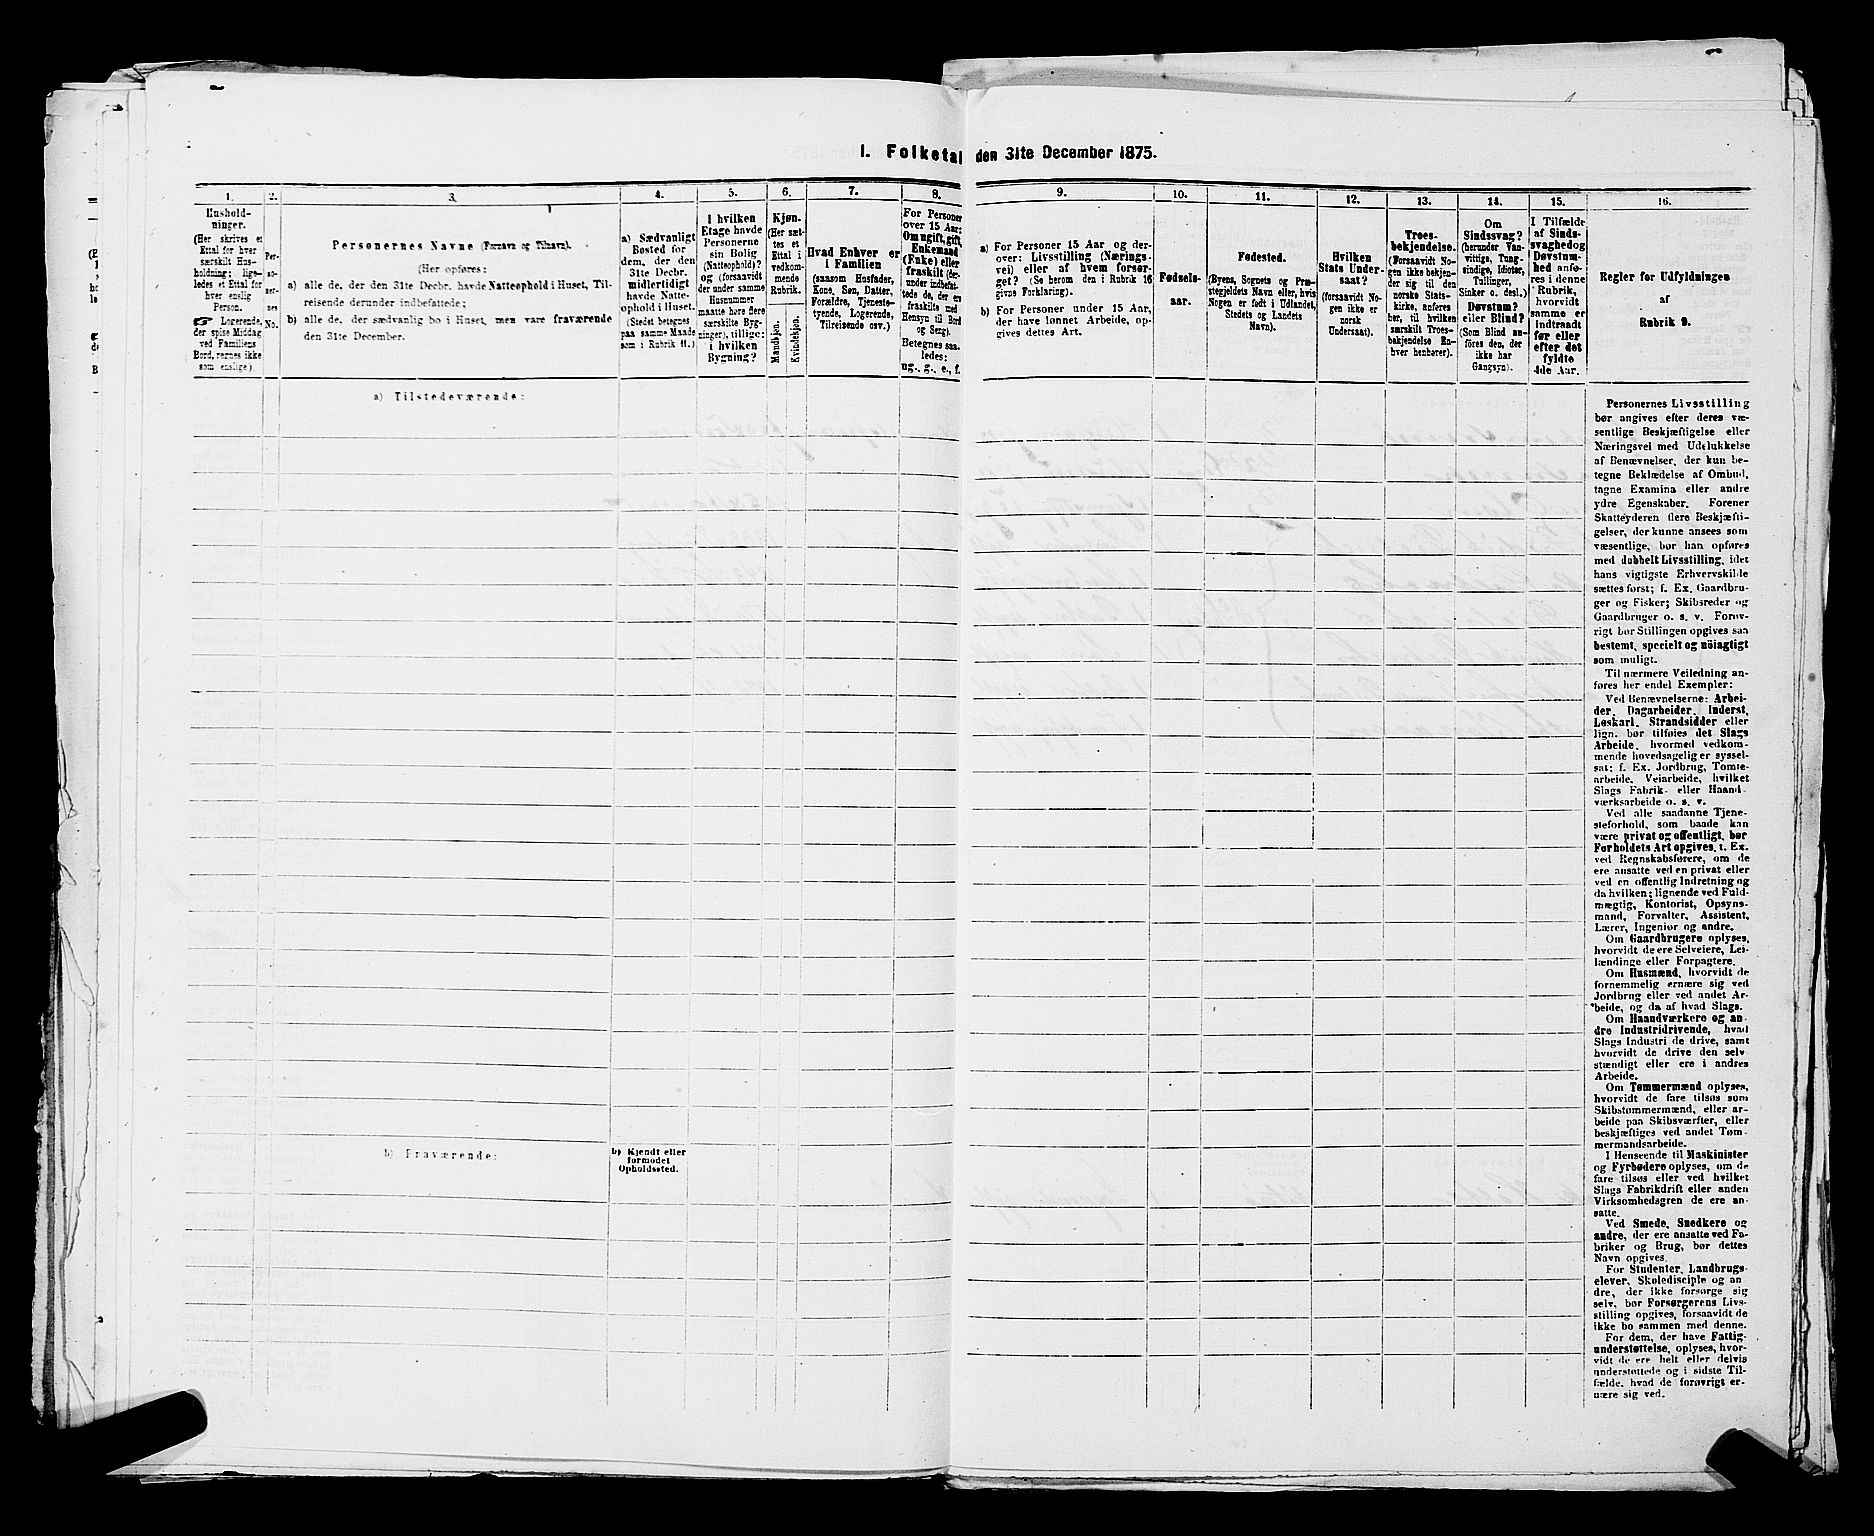 I. Folketal den 31te December 1875.
1.
Husholdninger.
(Her skrives et
Ettal for hver
særskilt Husholdning;
ligeledes et Ettal for
hver enslig
Person.
☞ Logerende,
der spise Middag
ved Familiens
Bord, regnes ikke
som enslige).
2.
Personernes
No.
3.
Personernes Navne (Fornavn og Tilnavn).
(Her opføres:
a) alle de, der den 31te Decbr. havde Natteophold i Huset, Tilreisende
derunder indbefattede;
b) alle de, der sædvanlig bo i Huset, men vare fraværende
den 31te December.
4.
a) Sædvanligt
Bosted for
dem, der den
31te Decbr.
midlertidigt
havde Natteophold
i Huset.
(Stedet betegnes
paa samme Maade
som i Rubrik 11.)
5.
I hvilken
Etage havde
Personerne
sin Bolig
(Natteophold)?
og (forsaavidt
der under samme
Husnummer
maatte høre flere
særskilte Bygninger),
tillige:
i hvilken
Bygning?
6.
Kjøn.
(Her sættes
et
Ettal i
vedkommende
Rubrik.
Mandkjøn.
Kvindekjøn.
7.
Hvad Enhver er
i Familien
(saasom Husfader,
Kone, Søn, Datter,
Forældre, Tjenestetyende,
Logerende,
Tilreisende osv.)
8.
For Personer
over 15 Aar:
Om ugift, gift,
Enkemand
(Enke) eller
fraskilt (derunder
indbefattede
de, der ere
fraskilte med
Hensyn til Bord
og Seng).
Betegnes saaledes:
ug., g., e., f.
9.
a) For Personer 15 Aar og derover:
Livsstilling (Næringsvei)
eller af hvem forsørget?
(Se herom den i Rubrik 16
givne Forklaring).
b) For Personer under 15 Aar,
der have lønnet Arbeide, opgives
dettes Art.
10.
Fødselsaar.
11.
Fødested.
(Byens, Sognets og Præstegjeldets
Navn eller, hvis
Nogen er født i Udlandet,
Stedets og Landets
Navn).
12.
Hvilken
Stats Undersaat?
(forsaavidt Nogen
ikke er
norsk
Undersaat).
13.
Troesbekjendelse.
(Forsaavidt Nogen
ikke bekjender
sig til den
norske Statskirke,
anføres
her, til hvilken
særskilt Troesbekjendelse
Enhver
henhører).
14.
Om
Sindssvag?
(herunder Vanvittige,
Tungsindige,
Idioter,
Tullinger,
Sinker o. desl.)
Døvstum?
eller Blind?
(Som Blind anføres
den, der
ikke har
Gangsyn).
15.
I Tilfælde
af Sindssvaghed
og
Døvstumhed
anføres
i denne
Rubrik,
hvorvidt
samme er
Indtraadt
før eller
efter det
fyldte
4de Aar.
16.
Regler for Udfyldningen
af
Rubrik 9.
a) Tilstedeværende:
b) Fraværende:
b) Kjendt eller
formodet
Opholdssted.
Personernes Livsstilling
bør angives efter deres væsentlige
Beskjæftigelse eller
Næringsvei med Udelukkelse
af Benævnelser, der kun betegne
Beklædelse af Ombud,
tagne Examina eller andre
ydre Egenskaber. Forener
Skatteyderen flere Beskjæftigelser,
der kunne ansees som
væsentlige, bør han opføres
med dobbelt Livsstilling, idet
hans vigtigste Erhvervskilde
sættes først; f. Ex. Gaardbruger
og Fisker; Skibsreder og
Gaardbruger o. s. v. Forøvrigt
bør Stillingen opgives saa
bestemt, specielt og nöiagtigt
som muligt.
Til nærmere Veiledning anføres
her endel Exempler:
Ved Benævnelserne: Arbeider,
Dagarbeider, Inderst,
Løskarl, Strandsidder eller
lign. bør tilføies det Slags
Arbeide, hvormed vedkommende
hovedsagelig er sysselsat;
f. Ex. Jordbrug, Tomtearbeide,
Veiarbeide, hvilket
Slags Fabrik- eller Haandværksarbeide
o. s. v.
Ved alle saadanne Tjenesteforhold,
som baade kan
være privat og offentligt, bør
Forholdets Art opgives, f. Ex.
ved Regnskabsførere, om de
ere ansatte ved en privat eller
ved en offentlig Indretning og
da hvilken; lignende ved Fuldmægtig,
Kontorist, Opsynsmand,
Forvalter, Assistent,
Lærer, Ingeniør og andre.
Om Gaardbrugere oplyses,
hvorvidt de ere Selveiere, Leilændinge
eller Forpagtere.
Om Husmænd, hvorvidt de
fornemmelig ernære sig ved
Jordbrug eller ved andet Arbeide,
og da af hvad Slags.
Om Haandværkere og andre
Industridrivende, hvad
Slags Industri de drive, samt
hvorvidt de drive den selvstændigt
eller ere i andres
Arbeide.
Om Tømmermænd oplyses,
hvorvidt de fare tilsøs som
Skibstømmermænd, eller arbeide
paa Skibsværfter, eller
beskjæftiges ved andet Tømmermandsarbeide.
I Henseende til Maskinister
og Fyrbødere oplyses, om de
fare tilsøs eller ved hvilket
Slags Fabrikdrift eller anden
Virksomhedsgren de ere ansatte.
Ved Smede, Snedkere og
andre, der ere ansatte ved Fabriker
og Brug, bør dettes
Navn opgives.
For Studenter, Landbrugselever,
Skoledisciple og andre,
der ikke forsørge sig
selv, bør Forsørgerens Livsstilling
opgives, forsaavidt de
ikke bo sammen med denne.
For dem, der have Fattigunderstøttelse,
oplyses, hvorvidt
de ere helt eller delvis
understøttede og i sidste Tilfælde,
hvad de forøvrigt ernære
sig ved.